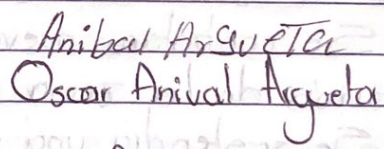 Anibal ArgueTa
Oscar Anival Argueta